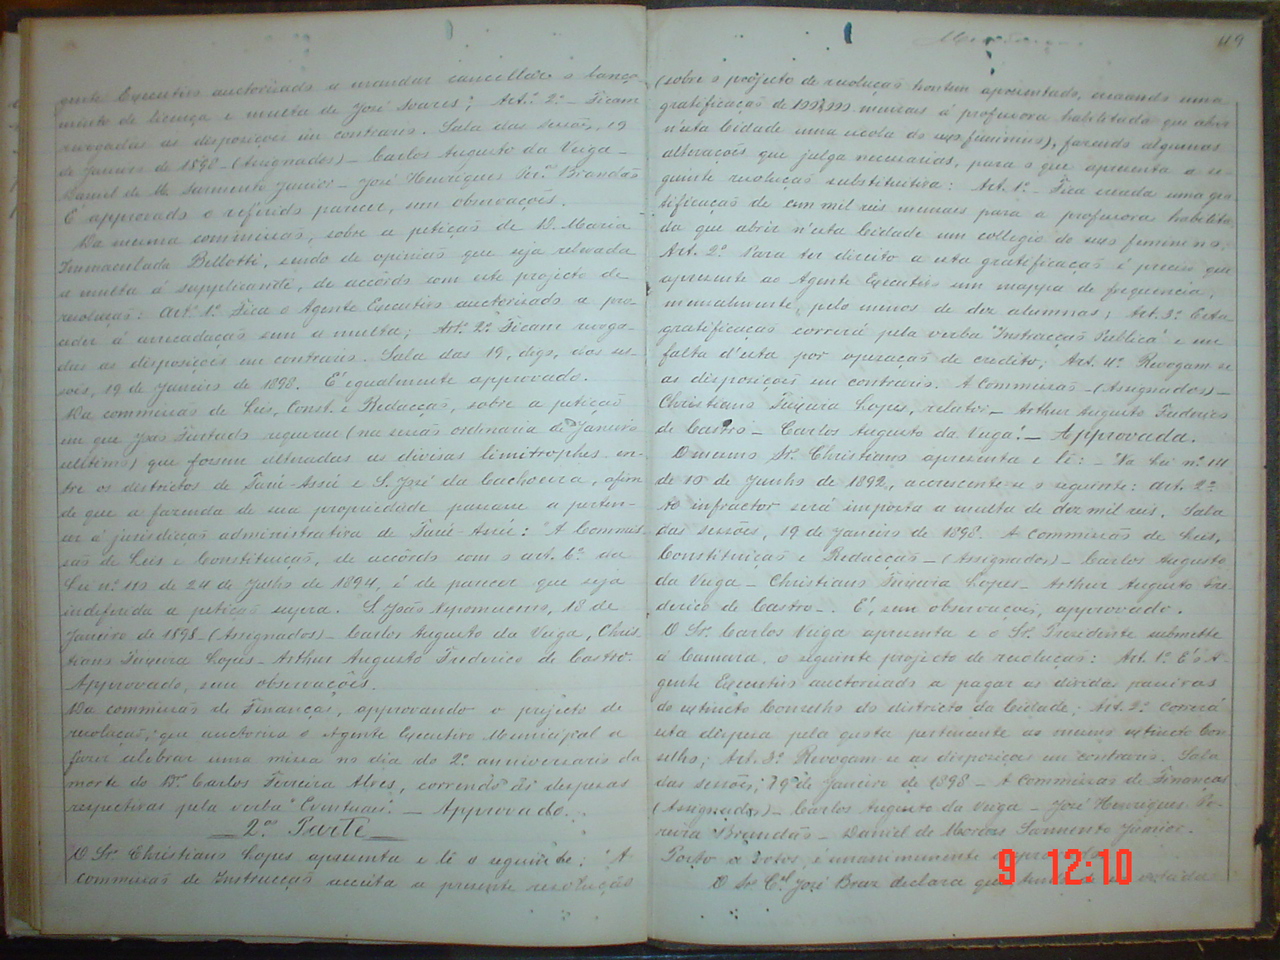 gente Executivo auctorisado a mandar cancellar o lança-
mento de licença e multa de José Soares; Art.º 2.º - Ficam
revogadas as disposições em contrario. Sala das sessões, 19
de Janeiro de 1898 - (Assignados) - Carlos Augusto da Veiga -
Daniel de M. Sarmento Junior - José Henriques Per.ª Brandão
É approvado o referido parecer, sem observações.
Da mesma commissão, sobre a petição de D. Maria
Immaculada Bellotti, sendo de opinião que seja relevada
a multa á supplicande, de accôrdo com este projecto de
resolução: Art.º 1.º Fica o Agente Executivo auctorisado a pro-
ceder á arrecadação sem a multa; Art.º 2.º Ficam revoga-
das as disposições em contrario. Sala das 19, digo, das ses-
sões, 19 de Janeiro de 1898. É egualmente approvado.
Da commissão de Leis, Const. e Redacção, sobre a petição
em que João Furtado requereu (na sessão ordinaria de Janeiro
ultimo) que fossem alteradas as divisas limitrophes en-
tre os districtos de Turú-Assú e S. José da Cachoeira, afim
de que a fazenda de sua propriedade passasse a perten-
cer á jurisdicção administrativa de Turú-Assú: "A Commis-
são de Leis e Constituição, de accôrdo com o art. 6.º da
Lei n.º 110 de 24 de Julho de 1894, é de parecer que seja
indeferida a petição supra. S. João Nepomuceno, 18 de
Janeiro de 1898 - (Assignados) - Carlos Augusto da Veiga, Chris-
tiano Teixeira Lopes - Arthur Augusto Frederico de Castro.
Approvado, sem observações.
Da commissão de Finanças, approvando o projecto de
resolução, que auctorisa o Agente Executivo Municipal a
fazer celebrar uma missa no dia do 2.º anniversario da
morte do Dr. Carlos Ferreira Alves, correndo as despesas
respectivas pela verba "Eventuaes". - Approvado.
2.ª Parte
O Sr. Christiano Lopes apresenta e lê o seguinte: "A
commissão de Instrucção acceita a presente resolução
119
(sobre o projecto de resolução hontem apresentado, creando uma
gratificação de mensaes á professora habilitada que abrir
n'esta Cidade uma escola do sexo feminino), fazendo algumas
alterações que julga necessarias, para o que apresenta a se-
guinte resolução substitutiva: Art. 1.º - Fica creada uma gra-
tificação de cem mil reis mensaes para a professora habilita-
da que abrir n'esta Cidade um collegio do sexo feminino;
Art. 2.º Para ter direito a esta gratificação é preciso que
apresente ao Agente Executivo um mappa de frequencia,
mensalmente, pelo menos de dez alumnas; Art. 3.º Esta
gratificação correrá pela verba "Instrucção Publica" e em
falta d'esta por operação de credito; Art. 4.º Revogam-se
as disposições em contrario. A Commissão - (Assignados) -
Christiano Teixeira Lopes, relator - Arthur Augusto Frederico
de Castro - Carlos Augusto da Veiga". - Approvada.
O mesmo Sr. Christiano apresenta e lê: - "Na Lei n.º 14
de 10 de Junho de 1892, accrescente-se o seguinte: Art. 2.º
Ao infractor será imposta a multa de dez mil reis. Sala
das sessões, 19 de Janeiro de 1898. A commissão de Leis,
Constituição e Redacção - (Assignados) - Carlos Augusto
da Veiga - Christiano Teixeira Lopes - Arthur Augusto Fre-
derico de Castro -. É, sem observações, approvado.
O Sr. Carlos Veiga apresenta e o Sr. Presidente submette
á Camara o seguinte projecto de resolução: Art. 1.º É o A-
gente Executivo auctorisado a pagar as dividas passivas
do extincto Conselho do districto da Cidade; Art. 2.º Correrá
esta despesa pela quota pertencente ao mesmo extincto Con-
selho; Art. 3.º Revogam-se as disposições em contrario. Sala
das sessões, 19 de Janeiro de 1898 - A Commissão de Finanças
(Assignados) - Carlos Augusto da Veiga - José Henriques Pe-
reira Brandão - Daniel de Moraes Sarmento Junior.
Posto a votos, é unanimemente
O Sr. C.el José Braz declara que
9 12:10